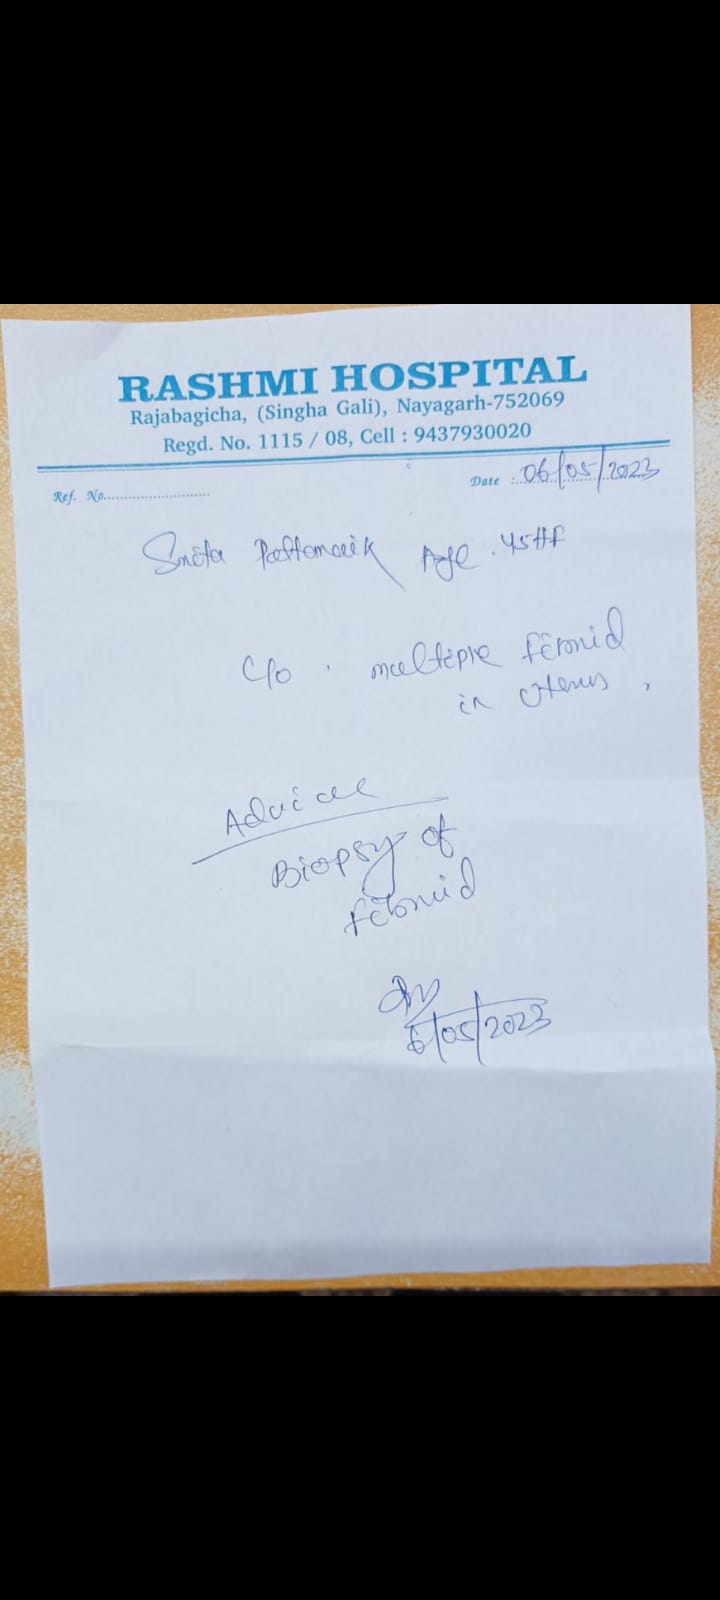 RASHMI HOSPITAL
Rajabagicha, (Singha Gali), Nayagarh-752069
Regd. No. 1115 / 08, Cell : 9437930020
Ref. No..........................
Date :..06/05/2023
Smita Pattanaik Age. 45yr/F
C/o . multiple fibroid
in uterus,
Advice
Biopsy of
fibroid
6/05/2023